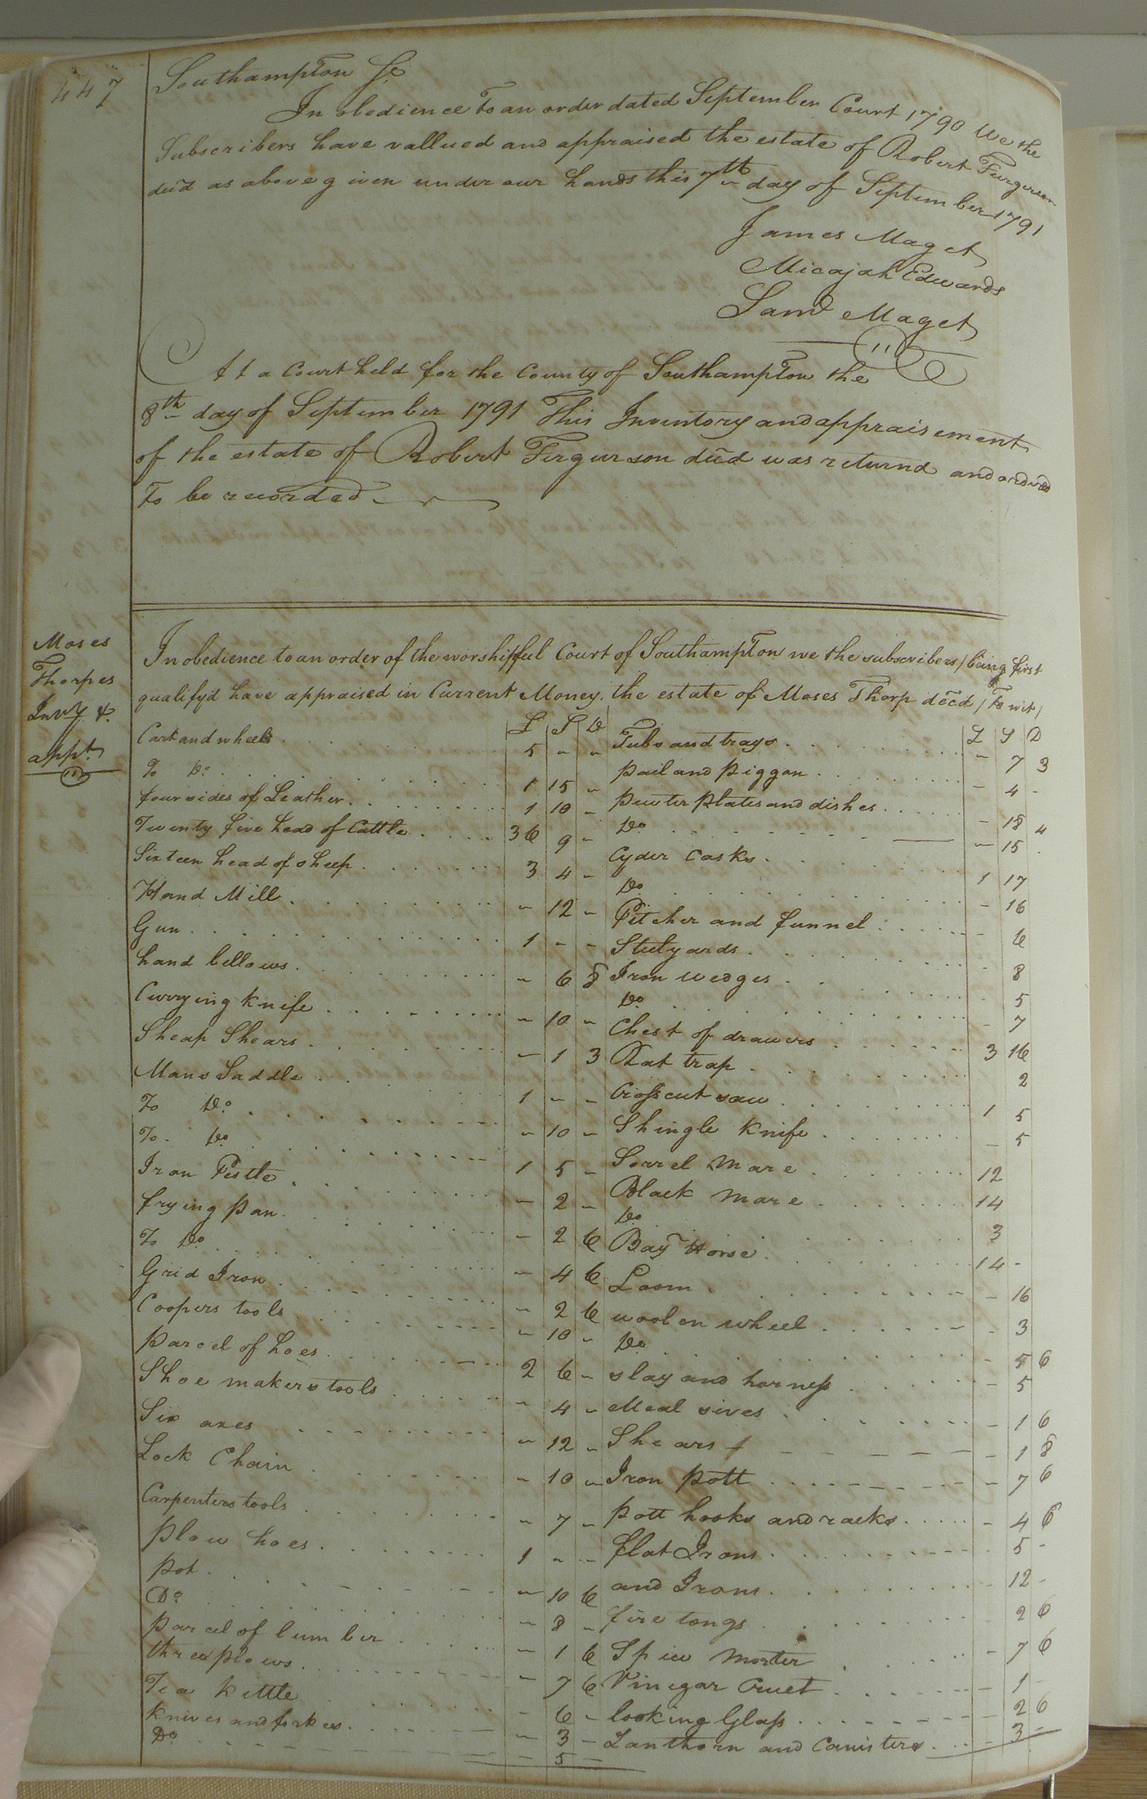 447
Southampton Sc
In obedience to an order dated September Court 1790 We the
Subscribers have vallued and appraised the estate of Robert Furgurson
decd as above given under our hands this 7th day of September 1791
James Maget
Micajah Edwards
Saml Maget
At a Court held for the County of Southampton the
8th day of September 1791 This Inventory and appraisement
of the estate of Robert Fergurson decd was returnd and ordered
to be recorded
Moses
Thorpes
Invy &
appt
In obedience to an order of the worshipful Court of Southampton we the subscribers / being first
qualifyd have appraised in Current Money. the estate of Moses Thorp decd / To wit /
£ S D
Cart and wheels 5 - -
To Do 1 15 -
four sides of Leather 1 10 -
Twenty five head of Cattle 36 9 -
Sixteen head of sheep 3 4 -
Hand Mill - 12 -
Gun 1 - -
hand bellows - 6 8
Currying knife - 10 -
Sheap Shears - 1 3
Mans Saddle 1 - -
To Do - 10 -
To Do 1 5 -
Iron Pestle - 2 -
frying pan - 2 6
To Do - 4 6
Grid Iron - 2 6
Coopers tools - 10 -
parcel of hoes 2 6 -
Shoe makers tools - 4 -
Six axes - 12 -
Lock Chain - 10 -
Carpenters tools - 7 -
plow hoes 1 - -
pot - 10 6
Do - 8 -
parcel of lumber - 1 6
three plows - 7 6
Tea kettle - 6 -
knives and forkes - 3 -
Do - 5 -
£ S D
Tubs and trays - 7 3
pail and piggan - 4 -
pewter plates and dishes - 18 4
Do - 15
Cyder Casks 1 17
Do - 16
Pitcher and funnel - 6
Stilyards - 8
Iron wedges - 5
Do - 7
Chest of drawers 3 16
Rat trap 2
Crosscut saw 1 5
Shingle knife - 5
Sorrel Mare 12
Black Mare 14
Do 3
Bay Horse 14 -
Loom - 16
woolen wheel - 3
Do - 8 6
slay and harness - 5
Meal sives - 1 6
Shears - 1 8
Iron pott - 7 6
pott hooks and racks - 4 6
flat Irons 5 -
and Irons 12 -
fire tongs 2 6
Spice Morter - 7 6
Vinegar Cruet - 1 -
looking Glass - 2 6
Lanthorn and Canisters - 3 -